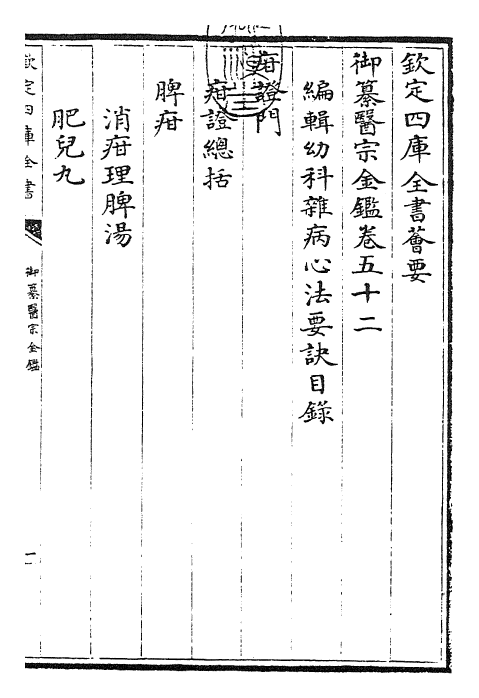 欽定四庫全書薈要
御纂醫宗金鑑卷五十二
編輯幼科雜病心法要訣目錄
疳證門
疳證總括
脾疳
消疳理脾湯
肥兒丸
欽定四庫全書
御纂醫宗金鑑
一